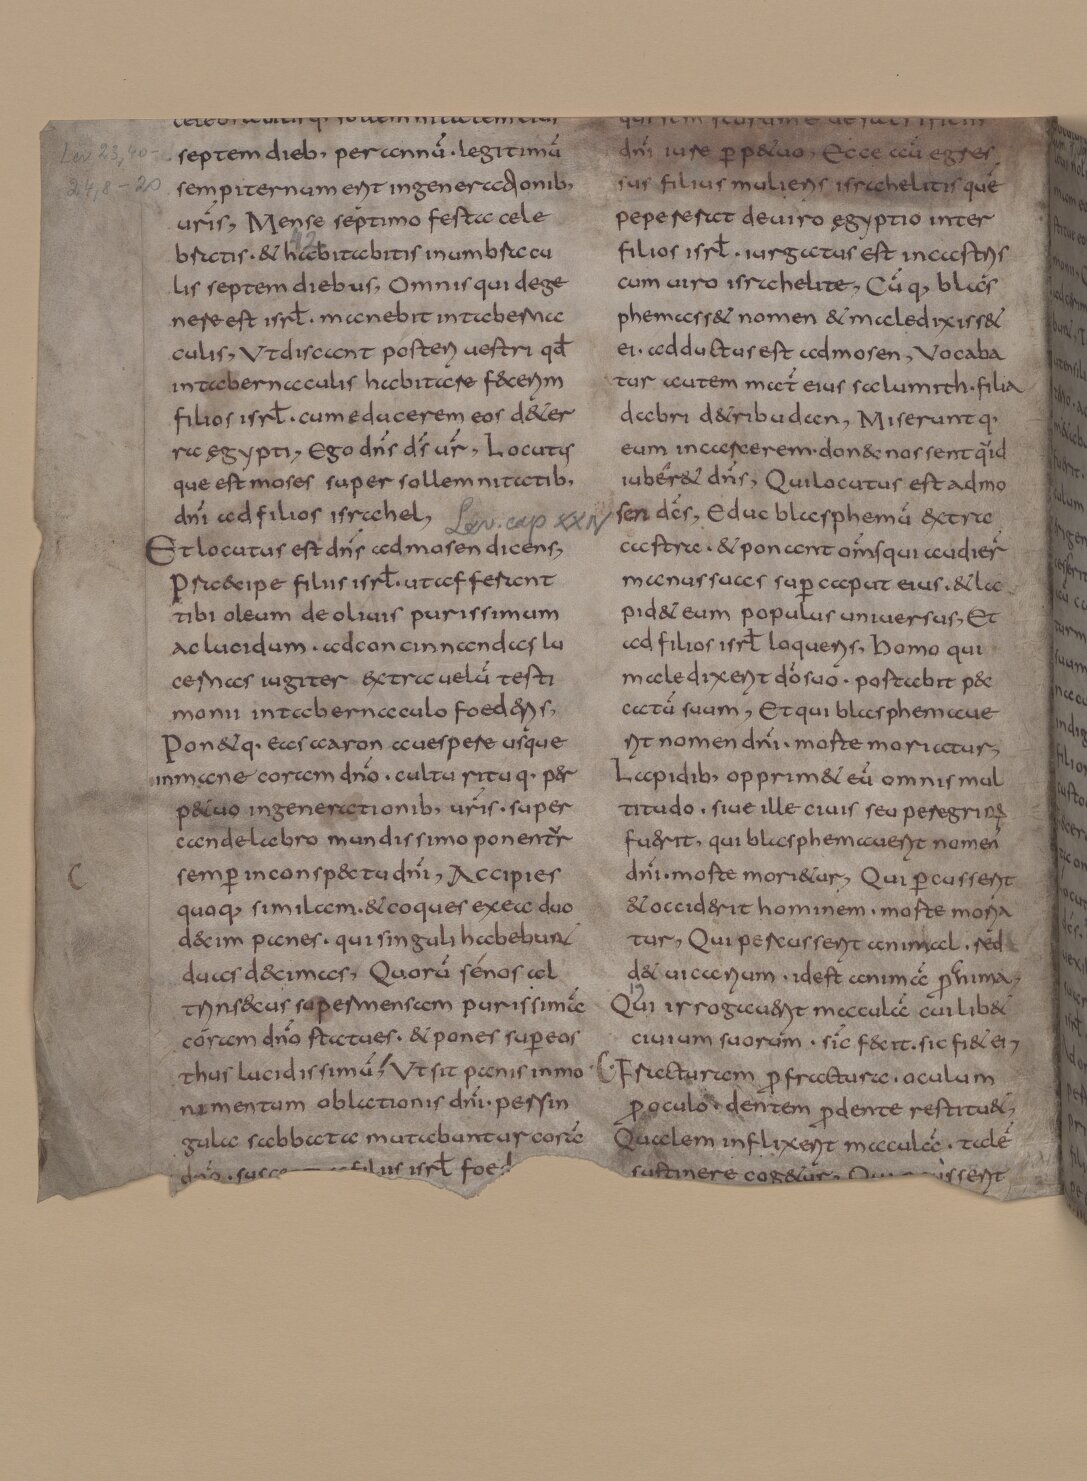 Lev 23,40-
24,8-20
celebrabitisq. sollemnitatem eius
septem dieb, per annū. legitimū
sempiternum erit in generationib,
uris, Mense septimo festa cele
bratis. & habitabitis in umbracu
42
lis septem diebus, Omnis qui dege
nere est isrł. manebit in taberna
culis, Ut discant posteri uestri qđ
in tabernaculis habitare fecerim
filios isrł. cum educerem eos d& er
ra ęgypti, Ego dns ds ur, Locutus
que est moses super sollemnitatib,
dni ad filios israhel,
Lev. cap XXIV
Et locutus est dns ad mosen dicens,
Praecipe filiis isrł. ut afferant
tibi oleum de oliuis purissimum
ac lucidum. ad concinnandas lu
cernas iugiter extra uelū testi
monii in tabernaculo foederis,
Pon&q. eas aaron a uespere usque
in mane coram dno. cultu rituq. per
p&uo in generationib, uris. super
candelabro mundissimo ponentr
semp in conspectu dni, Accipies
C
quoq, similam. & coques ex ea duo
decim panes. qui singuli habebunt
duas decimas, Quorū senos al
trinsecus super mensam purissimā
coram dno statues. & pones sup eos
thus lucidissimū, Ut sit panis in mo
numentum oblationis dni. per sin
gula sabbata mutabuntur corā
dno. filiis isrł foed
dni iure pp&uo, Ecce aū egres
sus filius mulieris israhelitis quē
pepererat de uiro ęgyptio inter
filios isrł. iurgatus est in castris
cum uiro israhelite, Cūq, blas
phemass& nomen & maledixiss&
ei. adductus est ad mosen, Vocaba
tur autem mat eius salumith. filia
dabri d& ribu dan, Miseruntq.
eum in carcerem. donec nossent quid
iuber& dns, Qui locutus est ad mo
sen dcs, Educ blasphemū extra
castra. & ponant oms qui audier
manus suas sup caput eius. & la
pid& eum populus uniuersus, Et
ad filios isrł loqueris, Homo qui
maledixerit do suo. portabit pec
catū suum, Et qui blasphemaue
rit nomen dni. morte moriatur,
Lapidib, opprim& eū omnis mul
titudo. siue ille ciuis seu peregrinus
fuerit, qui blasphemauerit nomen
dni. morte mori&ur, Qui pcusserit
& occiderit hominem. morte moria
tur, Qui percusserit animal. red
d& uicarium. id est animā p anima,
19
Qui irrogauerit maculā cuilib&
ciuium suorum. sic fecit. sic fi& ei,
Fracturam p fractura. oculum
p oculo. dentem p dente restitu&,
Qualem inflixerit maculā. talē
sustinere cog&ur,